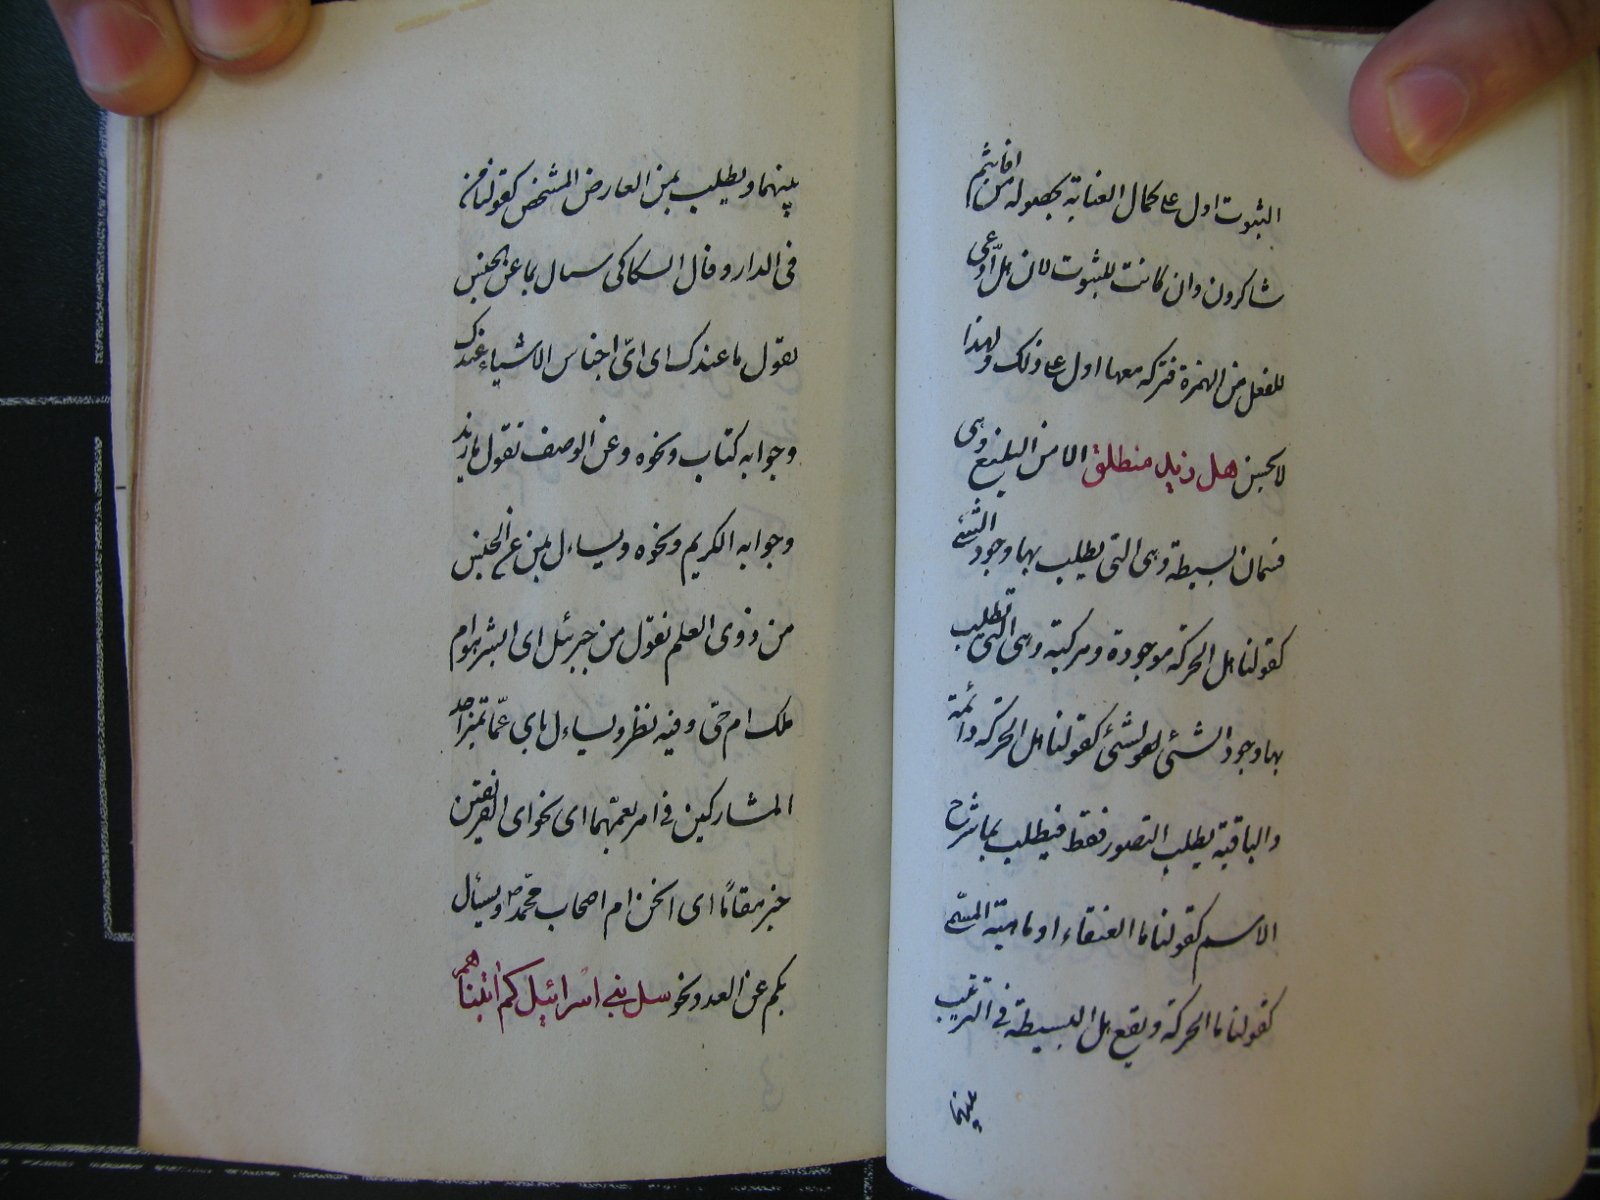 الثبوت ادل على كمال العناية بحصوله من افانتم
شاكرون وان كانت للثبوت لان هل ادعى
للفعل من الهمزة فتركه معها ادل على ذلك ولهذا
لا يحسن هل زيد منطلق الا من البليغ وهى
قسمان بسيطة وهى التى يطلب بها وجود الشئ
كقولنا هل الحركة موجودة ومركبة وهى التى تطلب
بها وجود الشئ لشئ كقولنا هل الحركة دائمة
والباقية يطلب التصور فقط فيطلب بما شرح
الاسم كقولنا ما العنقاء او ماهية المسمى
كقولنا ما الحركة ويقع هل البسيطة فى الترتيب
بينهما
بينهما ويطلب بمن العارض المشخص كقولنا من
فى الدار وقال السكاكى يسال بما عن الجنس
تقول ما عندك اى اىّ اجناس الاشياء عندك
وجوابه كتاب ونحوه وعن الوصف تقول ما زيد
وجوابه الكريم ونحوه ويساءل بمن عن الجنس
من ذوى العلم تقول من جبرئيل اى ابشر هو ام
ملك ام جنى وفيه نظر ويساءل باى عمّا تميز احد
المشاركين فى امر يعمّهما اى نحو اى الفريقين
خير مقامًا اى انحن ام اصحاب محمّد ص ويسئال
بكم عن العدد ونحو سل بنى اسرائيل كم اتيناهم